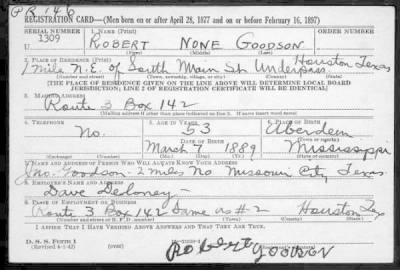 PR 146
REGISTRATION CARD—(Men born on or after April 28, 1877 and on or before February 16, 1897)
SERIAL NUMBER 1. NAME (Print) ORDER NUMBER
1309 ROBERT NONE GOODSON
2. PLACE OF RESIDENCE (Print)
1 mile N.E. of South Main St. Underpass Houston Texas
(Number and street) (Town, township, village, or city) (County) (State)
[THE PLACE OF RESIDENCE GIVEN ON THE LINE ABOVE WILL DETERMINE LOCAL BOARD
JURISDICTION; LINE 2 OF REGISTRATION CERTIFICATE WILL BE IDENTICAL]
3. MAILING ADDRESS
Route 3 Box 142
[Mailing address if other than place indicated on line 2. If same insert word same]
4. TELEPHONE 5. AGE IN YEARS 6. PLACE OF BIRTH
No. 53 Aberdeen
DATE OF BIRTH (Town or county)
March 7 1889 Mississippi
(Exchange) (Number) (Mo.) (Day) (Yr.) (State or country)
7. NAME AND ADDRESS OF PERSON WHO WILL ALWAYS KNOW YOUR ADDRESS
Jno. Goodson - 2 miles No Missouri City Texas
8. EMPLOYER'S NAME AND ADDRESS
Dave
9. PLACE OF EMPLOYMENT OR BUSINESS
Route 3 Box 142 Same as #2 Houston Tex
(Number and street or R. F. D. number) (Town) (County) (State)
I AFFIRM THAT I HAVE VERIFIED ABOVE ANSWERS AND THAT THEY ARE TRUE.
D. S. S. Form 1
(Revised 4-1-42) (over)
Robert Goodson